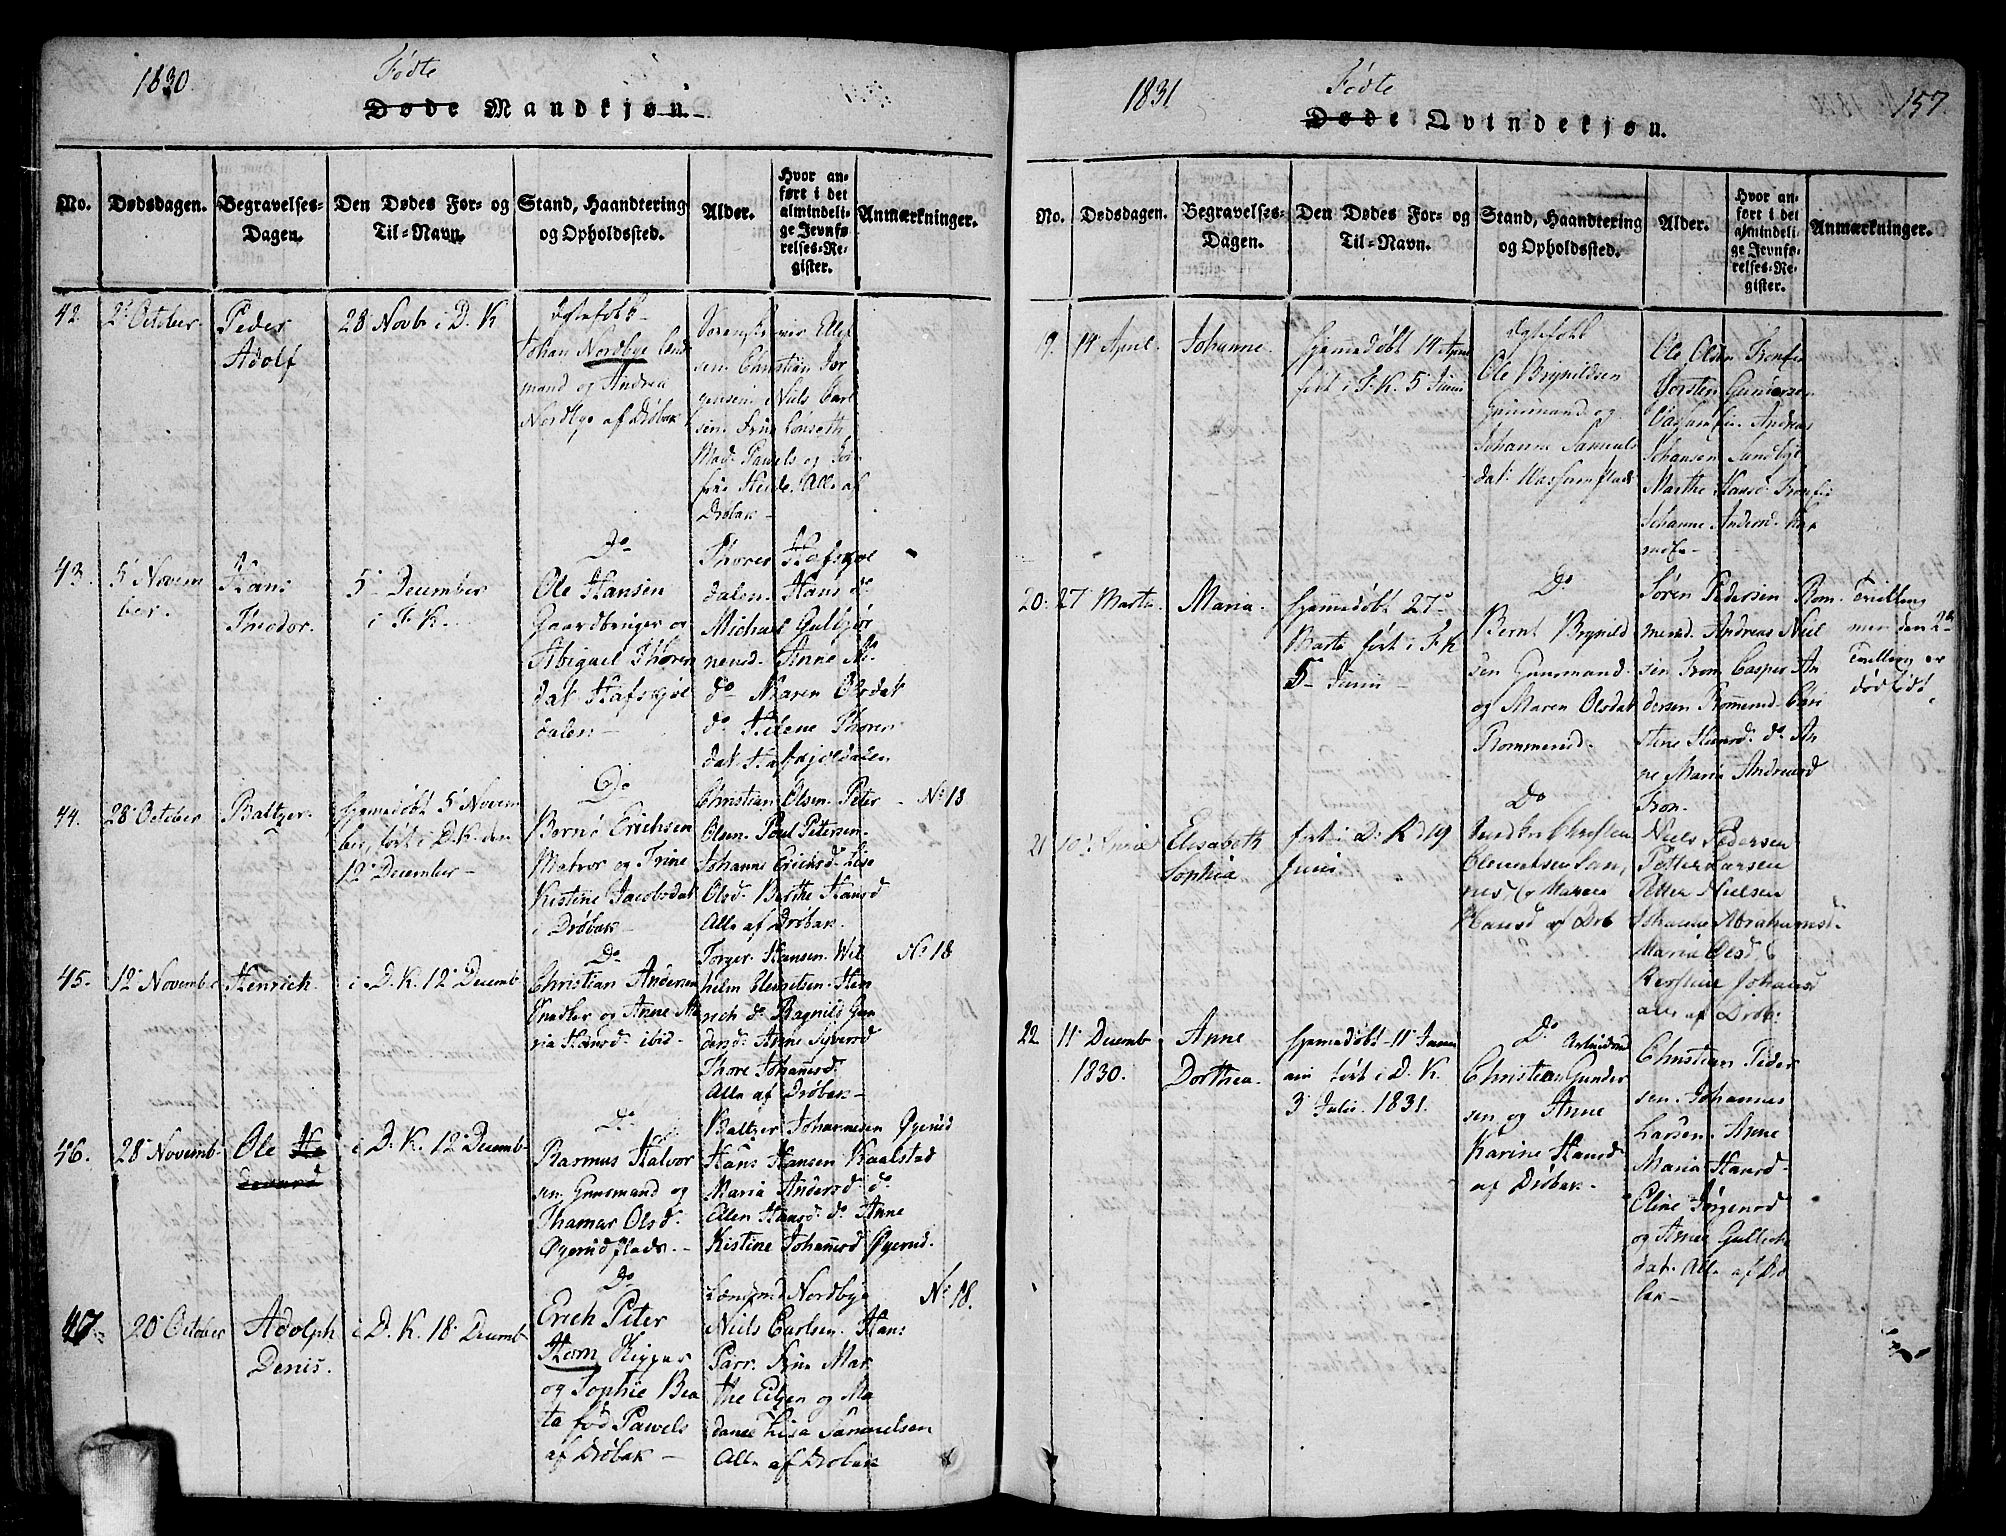 1830
Fødte
Døde Mandkjøn.
No.
Dødsdagen.
Begravelses-
Dagen.
Den Dødes For- og
Til-Navn.
Stand, Haandtering
og Opholdssted.
Alder.
Hvor an-
ført i det
almindeli-
ge Jevnfø-
relses-Re-
gister.
Anmærkninger.
42.
2 October.
Peder
Adolf
28 Novb i D. K
Johan Nordbye
mand og Andrea
Nordbye af Drøbak
sen. Christian Jør
gensen. Niels Carl
Mad. Pawels og
Alle af
Drøbak
43.
5 Novem
ber.
Hans
Thodor.
5 December
i F. K.
Do
Ole Hansen
Gaardbruger og
Abigael Thoren
dat. Hafskjøl
dalen
Thorer Hafskjøl
dalen. Hans do
Michael Gulbjør
nensd. Anne M.
do Maren Olsdat
do Helene Thorer
dat. Hafskjoldalen
44.
28 October
Baltzer.
Hjemedøbt 5 Novem
ber, ført i D. K. den
12 December
Do
Bernt Erichsen
Matros og Trine
Kistine Jacobsdat
i Drøbak
Christian Olsen. Peter
Olsen. Poul Petersen.
Johanne Erichsd. Lise
Olsd. Berthe Hansd
Alle af Drøbak
No 18
45.
12 Novembr
Henrich.
i D. K. 12 Decemb
Do
Christian Andersen
Snedker og Anne Ma
ria Hansd. ibid
Torger Hansen. Wil
helm Clemetsen. Hen
rich do Ragnild Gun
dersd. Anne Syversd
Thore Johannsd.
Alle af Drøbak
No 18
46.
28 Novemb
Ole He
i D. K. 12 Decemb
Do
Rasmus Halvor
sen Gruusmand og
Thamar Olsd.
Øgerud plads.
Baltzer Johannesen Øgerud
Hans Hansen Kaalstad
Maria Andersd. do
Ellen Hansd. do Anne
Kistine Johannsd Øgerud.
47.
20 October
Adolph
Denis.
i D. K. 18 Decemb
Do
Erich Peter
Horn Kigger
og Sophie Bea
ta fød Pawels
af Drøbak
Nordbye
Niels Carlsen. Hans
Parr. Frue Mar
the Eilsen og Ma
dame Lisa Samuelsen
Alle af Drøbak
No 18.
1831
Fødte
157.
Døde Qvindekjøn.
No.
Dødsdagen.
Begravelses-
Dagen.
Den Dødes For- og
Til-Navn.
Stand, Haandtering
og Opholdssted.
Alder.
Hvor an-
ført i det
almindeli-
ge Jevnfø-
relses-Re-
gister.
Anmærkninger.
9.
14 April.
Johanne.
Hjemedøbt 14 April
ført i F. K. 5 Junii
Ole Brynildsen
og
Johanne Samuels
dat.
Ole Olsen
Torsten Gundersen
Andreas
Johansen Sundbye
Marthe Hansd.
Johanne Andersd.
20.
27 Marts.
Maria.
Hjemedøbt 27
Marts ført i F. K
5 Junii
Do
Bernt Brynild
sen Gruusmand
og Maren Olsdat
Rommerud.
Søren Pedersen Rom
merud. Andreas Niel
sen Tron. Casper An
dersen Rommerud. Chri
stine Hansd. do An
ne Maria Andreasd
Tron.
Tvilling
men den 2den
Tvilling er
død født.
21
10 April
Elisabeth
Sophia
ført i D. K. d 19
Junii
Do
Clemetsen
og Maren
Hansd af Drb
Niels Pedersen
Petter Larsen
Petter Nielsen
Johanne Abrahamsd.
Maria Olsd. &
Johansd
alle af Drøb.
22
11 Decemb
1830.
Anne
Dorthea.
Hjemedøbt 11 Janu
arii ført i D. K.
3 Julii 1831.
Do
Christian Gunder
sen og Anne
Karine Hansd
af Drøbak
Christian Peder
sen. Johannes
Larsen. Anne
Maria Hansd
Eline Jørgensd
og Anne Gullich
dat. Alle af Drø
bak